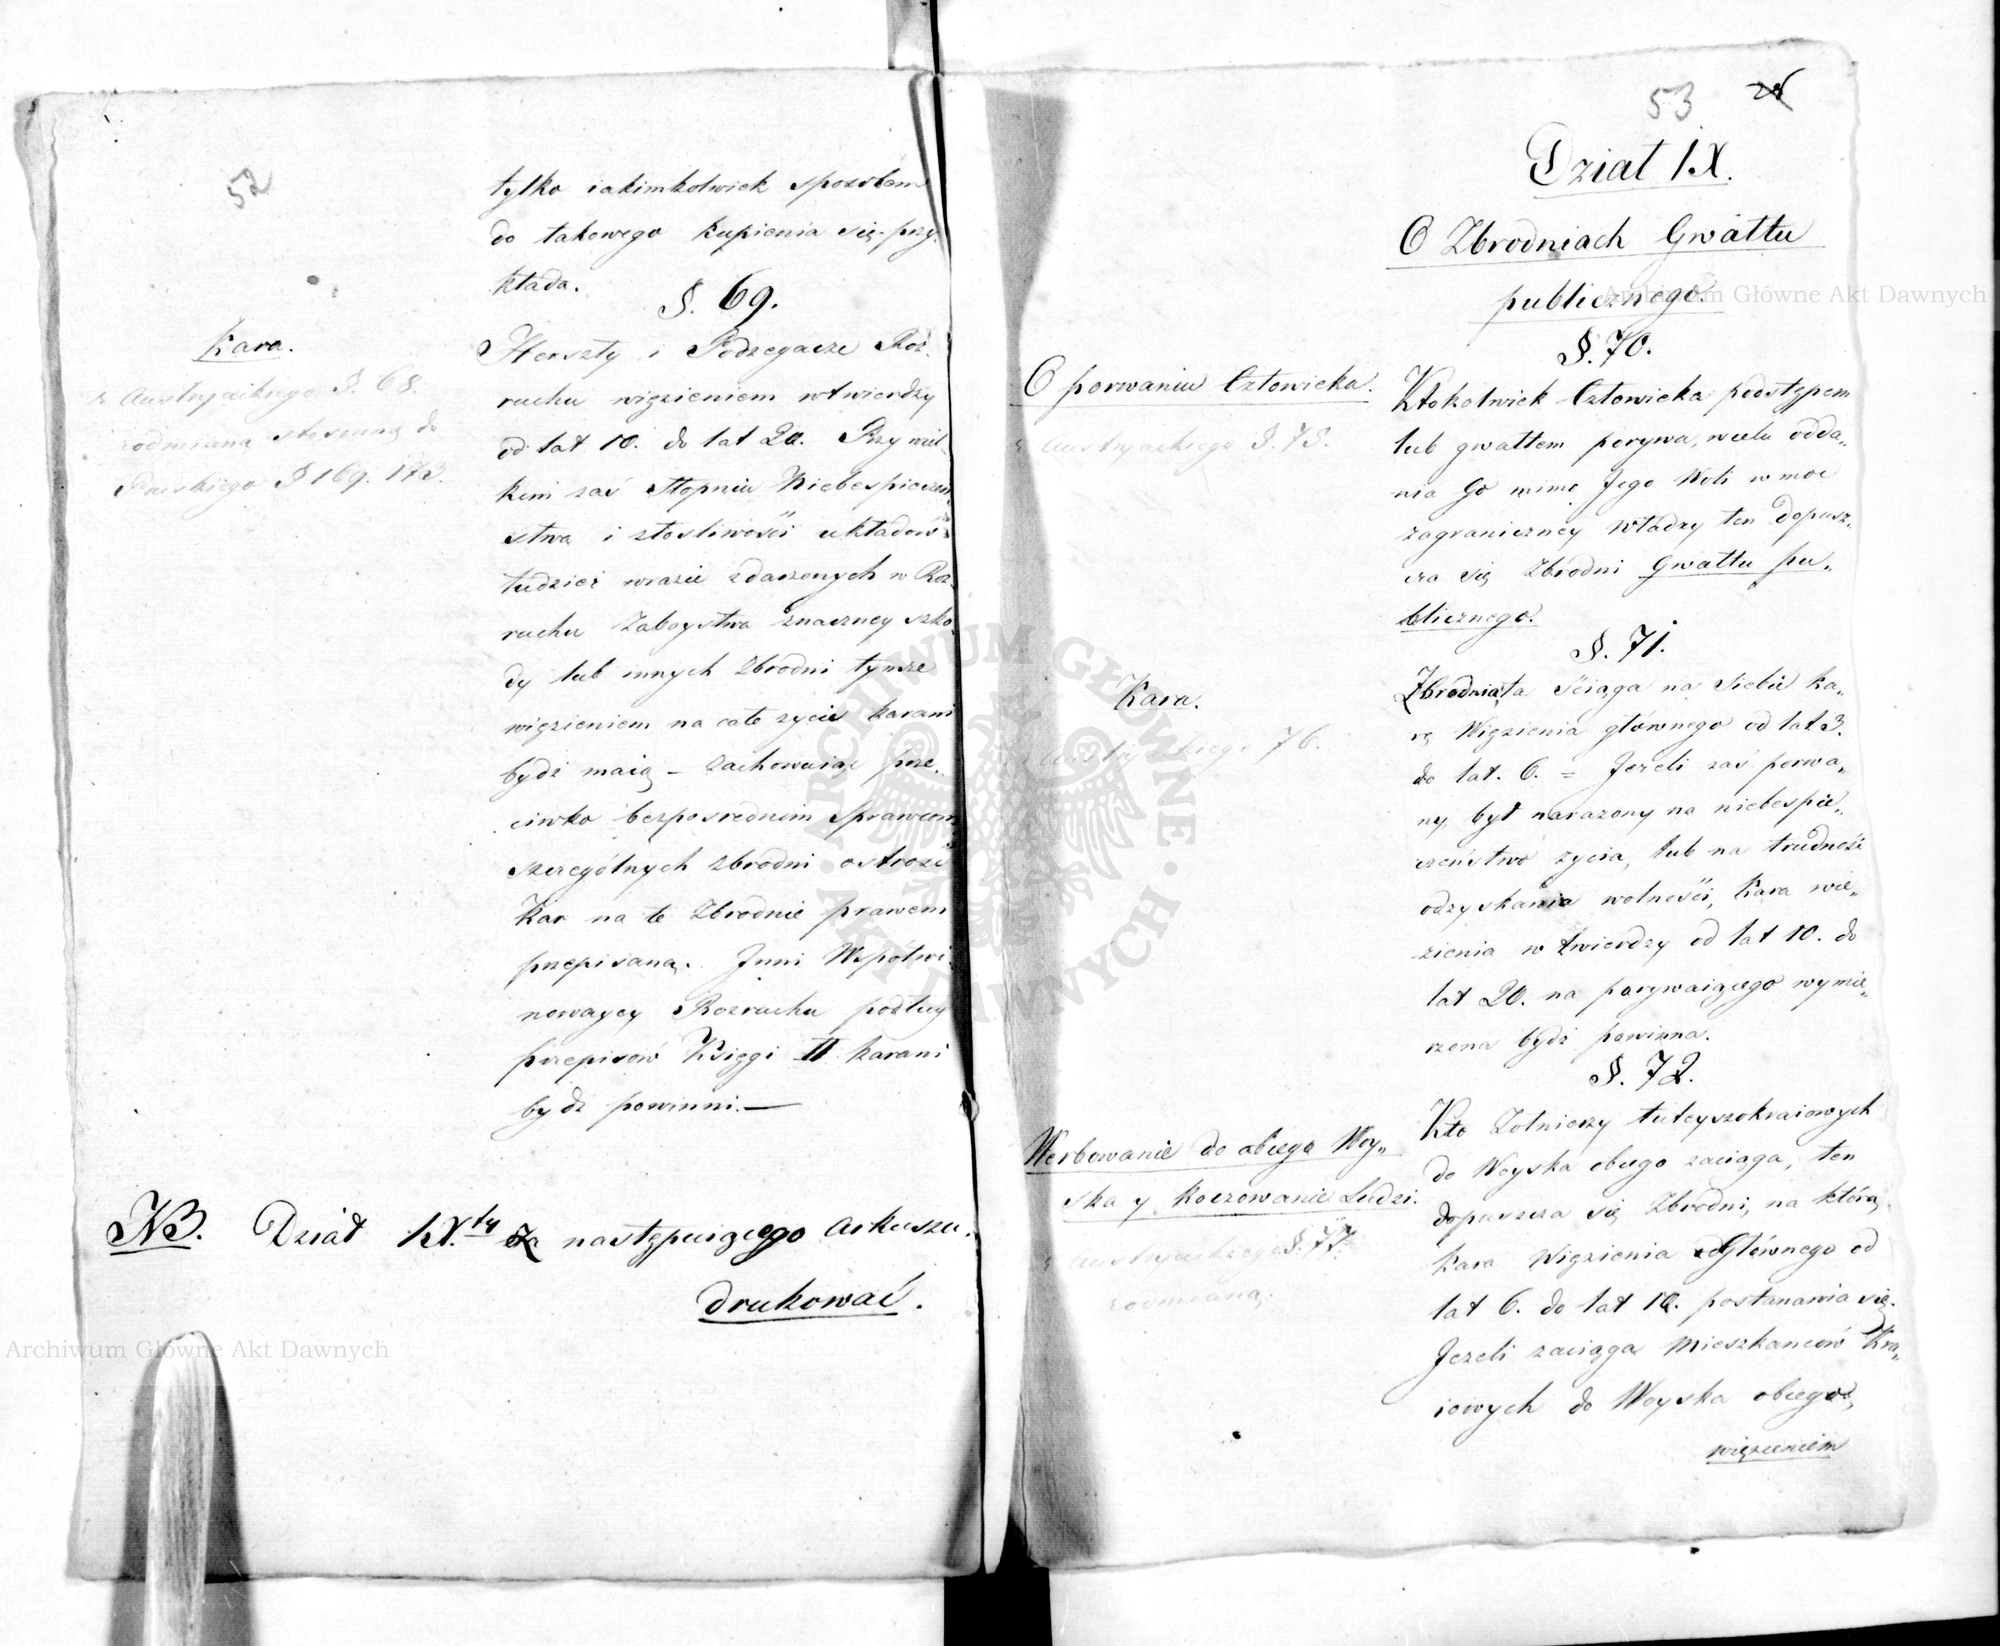 52
tylko iakimkolwiek sposobem
do takowego kupienia się przy„
kłada.
§. 69.
Kara.
z Austryackiego §. 68.
z odmianą stosowną do
Pruskiego § 169. 173.
Herszty i Podżegacze Roz„
ruchu więzieniem w twierdzy
od lat 10. do lat 20. Przy wiel„
kim zaś Stopniu Niebespieczeń„
stwa i złosliwości układów
tudzież wrazie zdarzonych w Roz„
ruchu Zaboystwa znaczney szko„
dy lub innych Zbrodni tymże
więzieniem na całe życie karani
bydź maią – zachowuiąc prze„
ciwko bezposrednim Sprawcom
szczególnych zbrodni ostrość
Kar na te Zbrodnie prawem
przepisaną. Inni Wspołwi„
nowaycy Rozruchu podług
przepisów Księgi II karani
bydź powinni.—
NB. Dział IX.ty Za następuiącego arkuszu.
drukować.
53
Dział IX.
O Zbrodniach Gwałtu
publicznego.
§. 70.
O porwaniu Człowieka.
z Austryackiego §. 75.
Ktokolwiek Człowieka podstępem
lub gwałtem porywa, w celu odda„
nia Go mimo Jego Woli w moc
zagraniczney Władzy ten dopusz„
cza się Zbrodni Gwałtu pu„
blicznego.
§. 71.
Kara.
z Austryackiego 76.
Zbrodnia ta ściąga na siebie ka„
rę Więzienia głównego od lat 3.
do lat. 6. = Jeżeli zaś porwa„
ny był narażony na niebespie„
czeństwo życia, lub na trudność
odzyskania wolności, Kara wię„
zienia w twierdzy od lat 10. do
lat 20. na porywaiącego wymie„
rzona bydź powinna.
§. 72.
Werbowanie do obcego Woy„
ska y Koczowanie Ludzi.
z Austryackiego §. 77.
z odmianą.
Kto Żołnierzy tuteyszokraiowych
do Woyska obcego zaciąga, ten
dopuszcza się Zbrodni, na którą
kara Więzienia Głównego od
lat 6. do lat 10. postanawia się.
Jeżeli zaciąga Mieszkańców Kra„
iowych do Woyska obcego,
więzieniem
Archiwum Główne Akt Dawnych
Archiwum Główne Akt Dawnych
ARCHIWUM GŁÓWNE AKT DAWNYCH